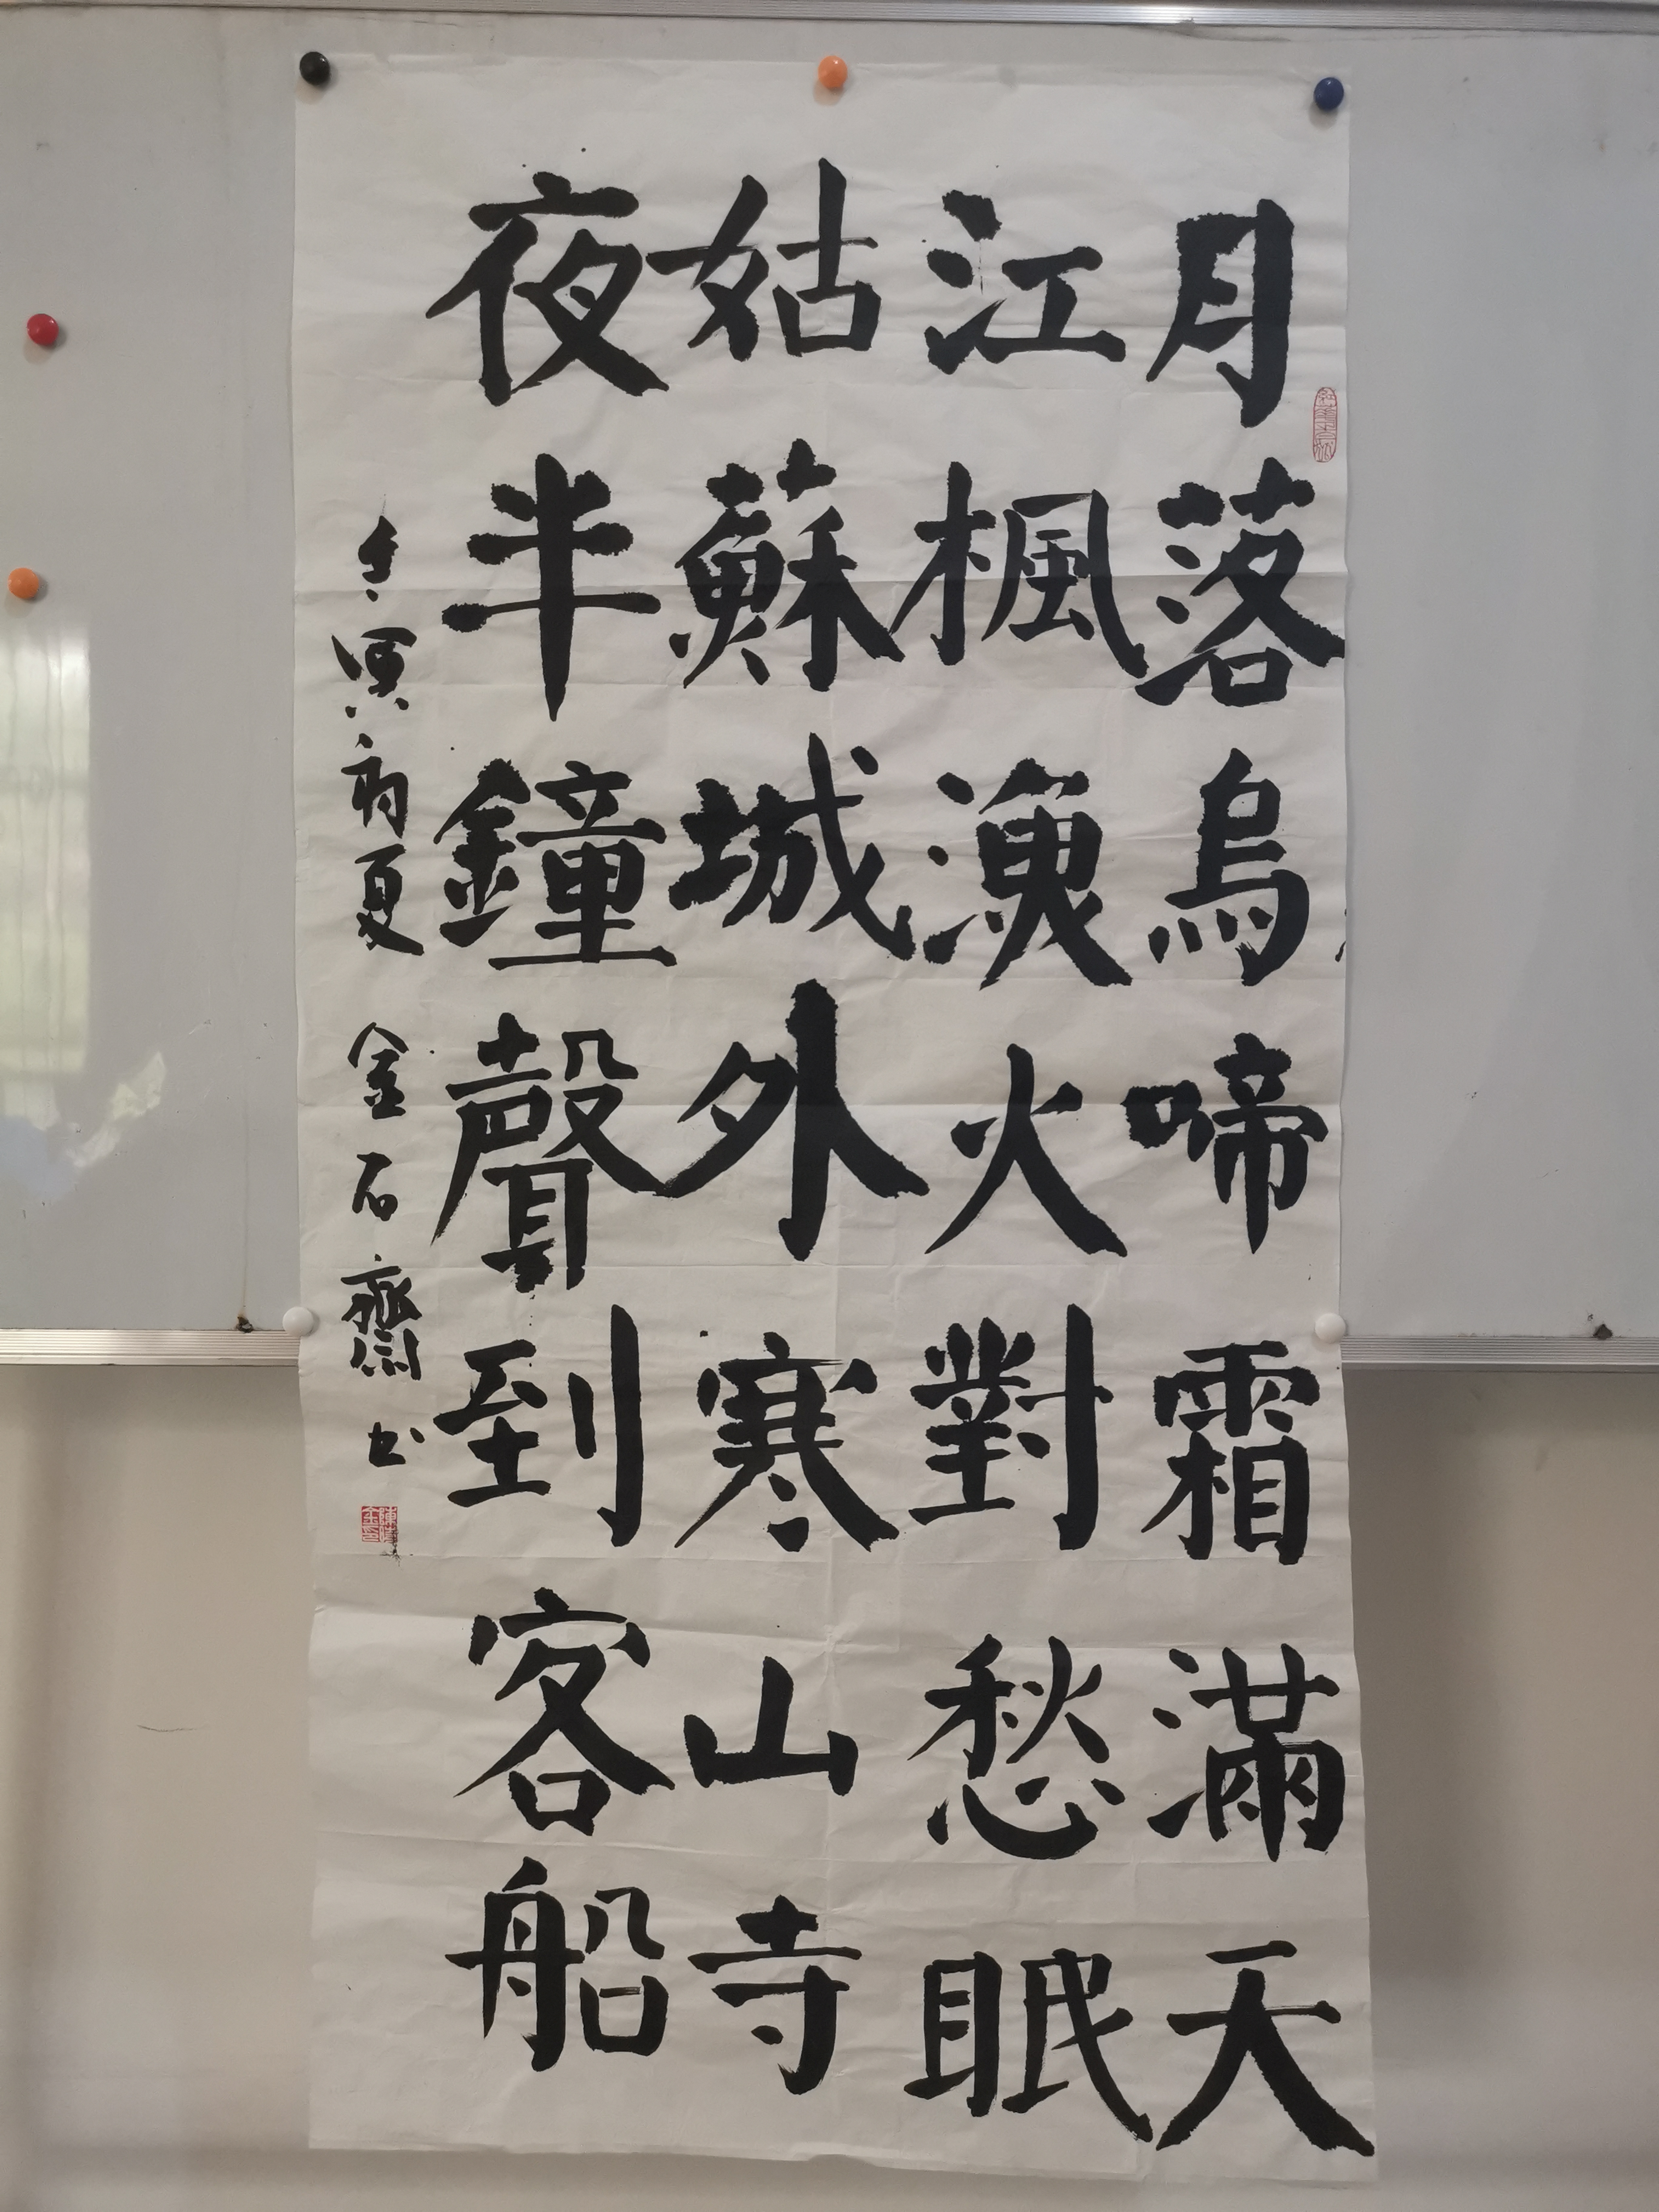 月落烏啼霜滿天
江楓漁火對愁眠
姑蘇城外寒山寺
夜半鐘聲到客船
壬寅初夏 金石齋书